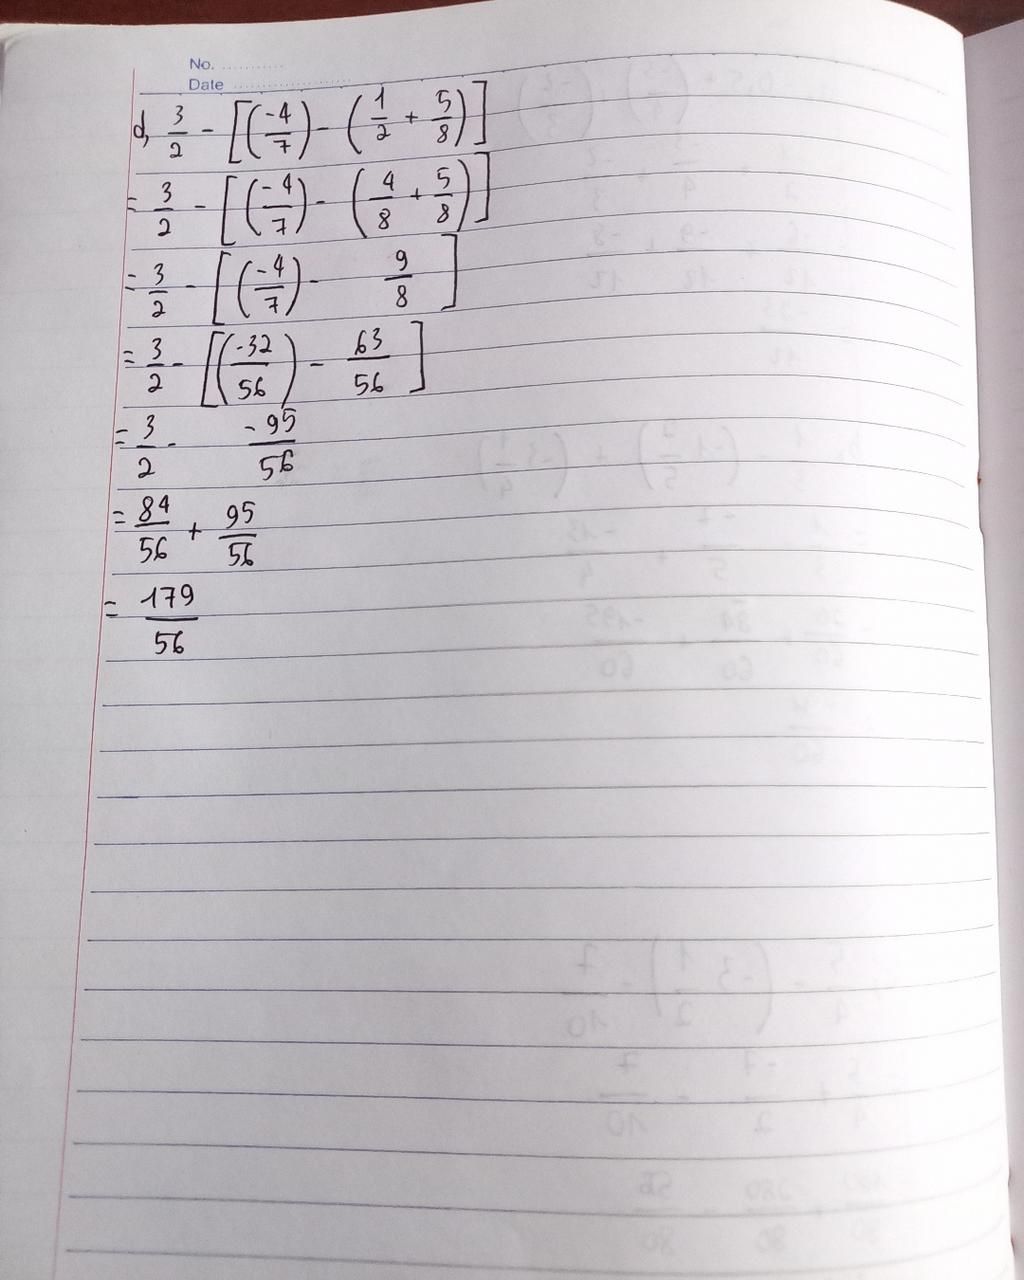 No. ...........
Date ...........................
d, 3/2 - [(-4/7) - (1/2 + 5/8)]
= 3/2 - [(-4/7) - (4/8 + 5/8)]
= 3/2 - [(-4/7) - 9/8]
= 3/2 - [(-32/56) - 63/56]
= 3/2 - -95/56
= 84/56 + 95/56
= 179/56